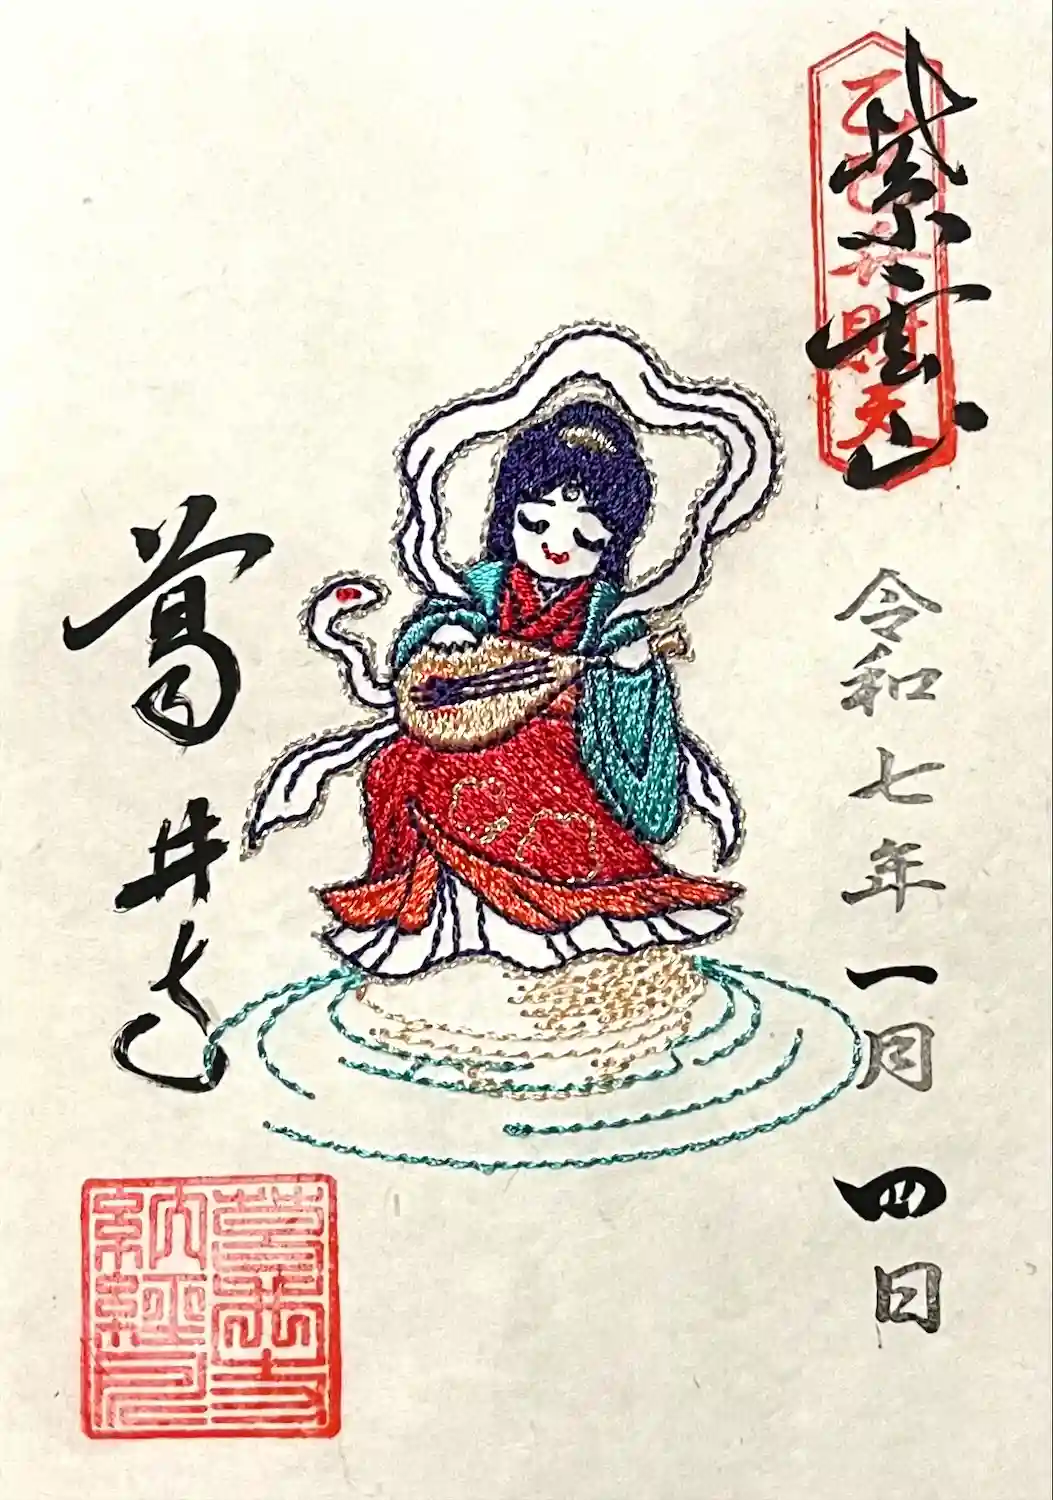 紫雲山
乙巳弁財天
令和七年一月四日
葛井寺
葛井寺
納経印